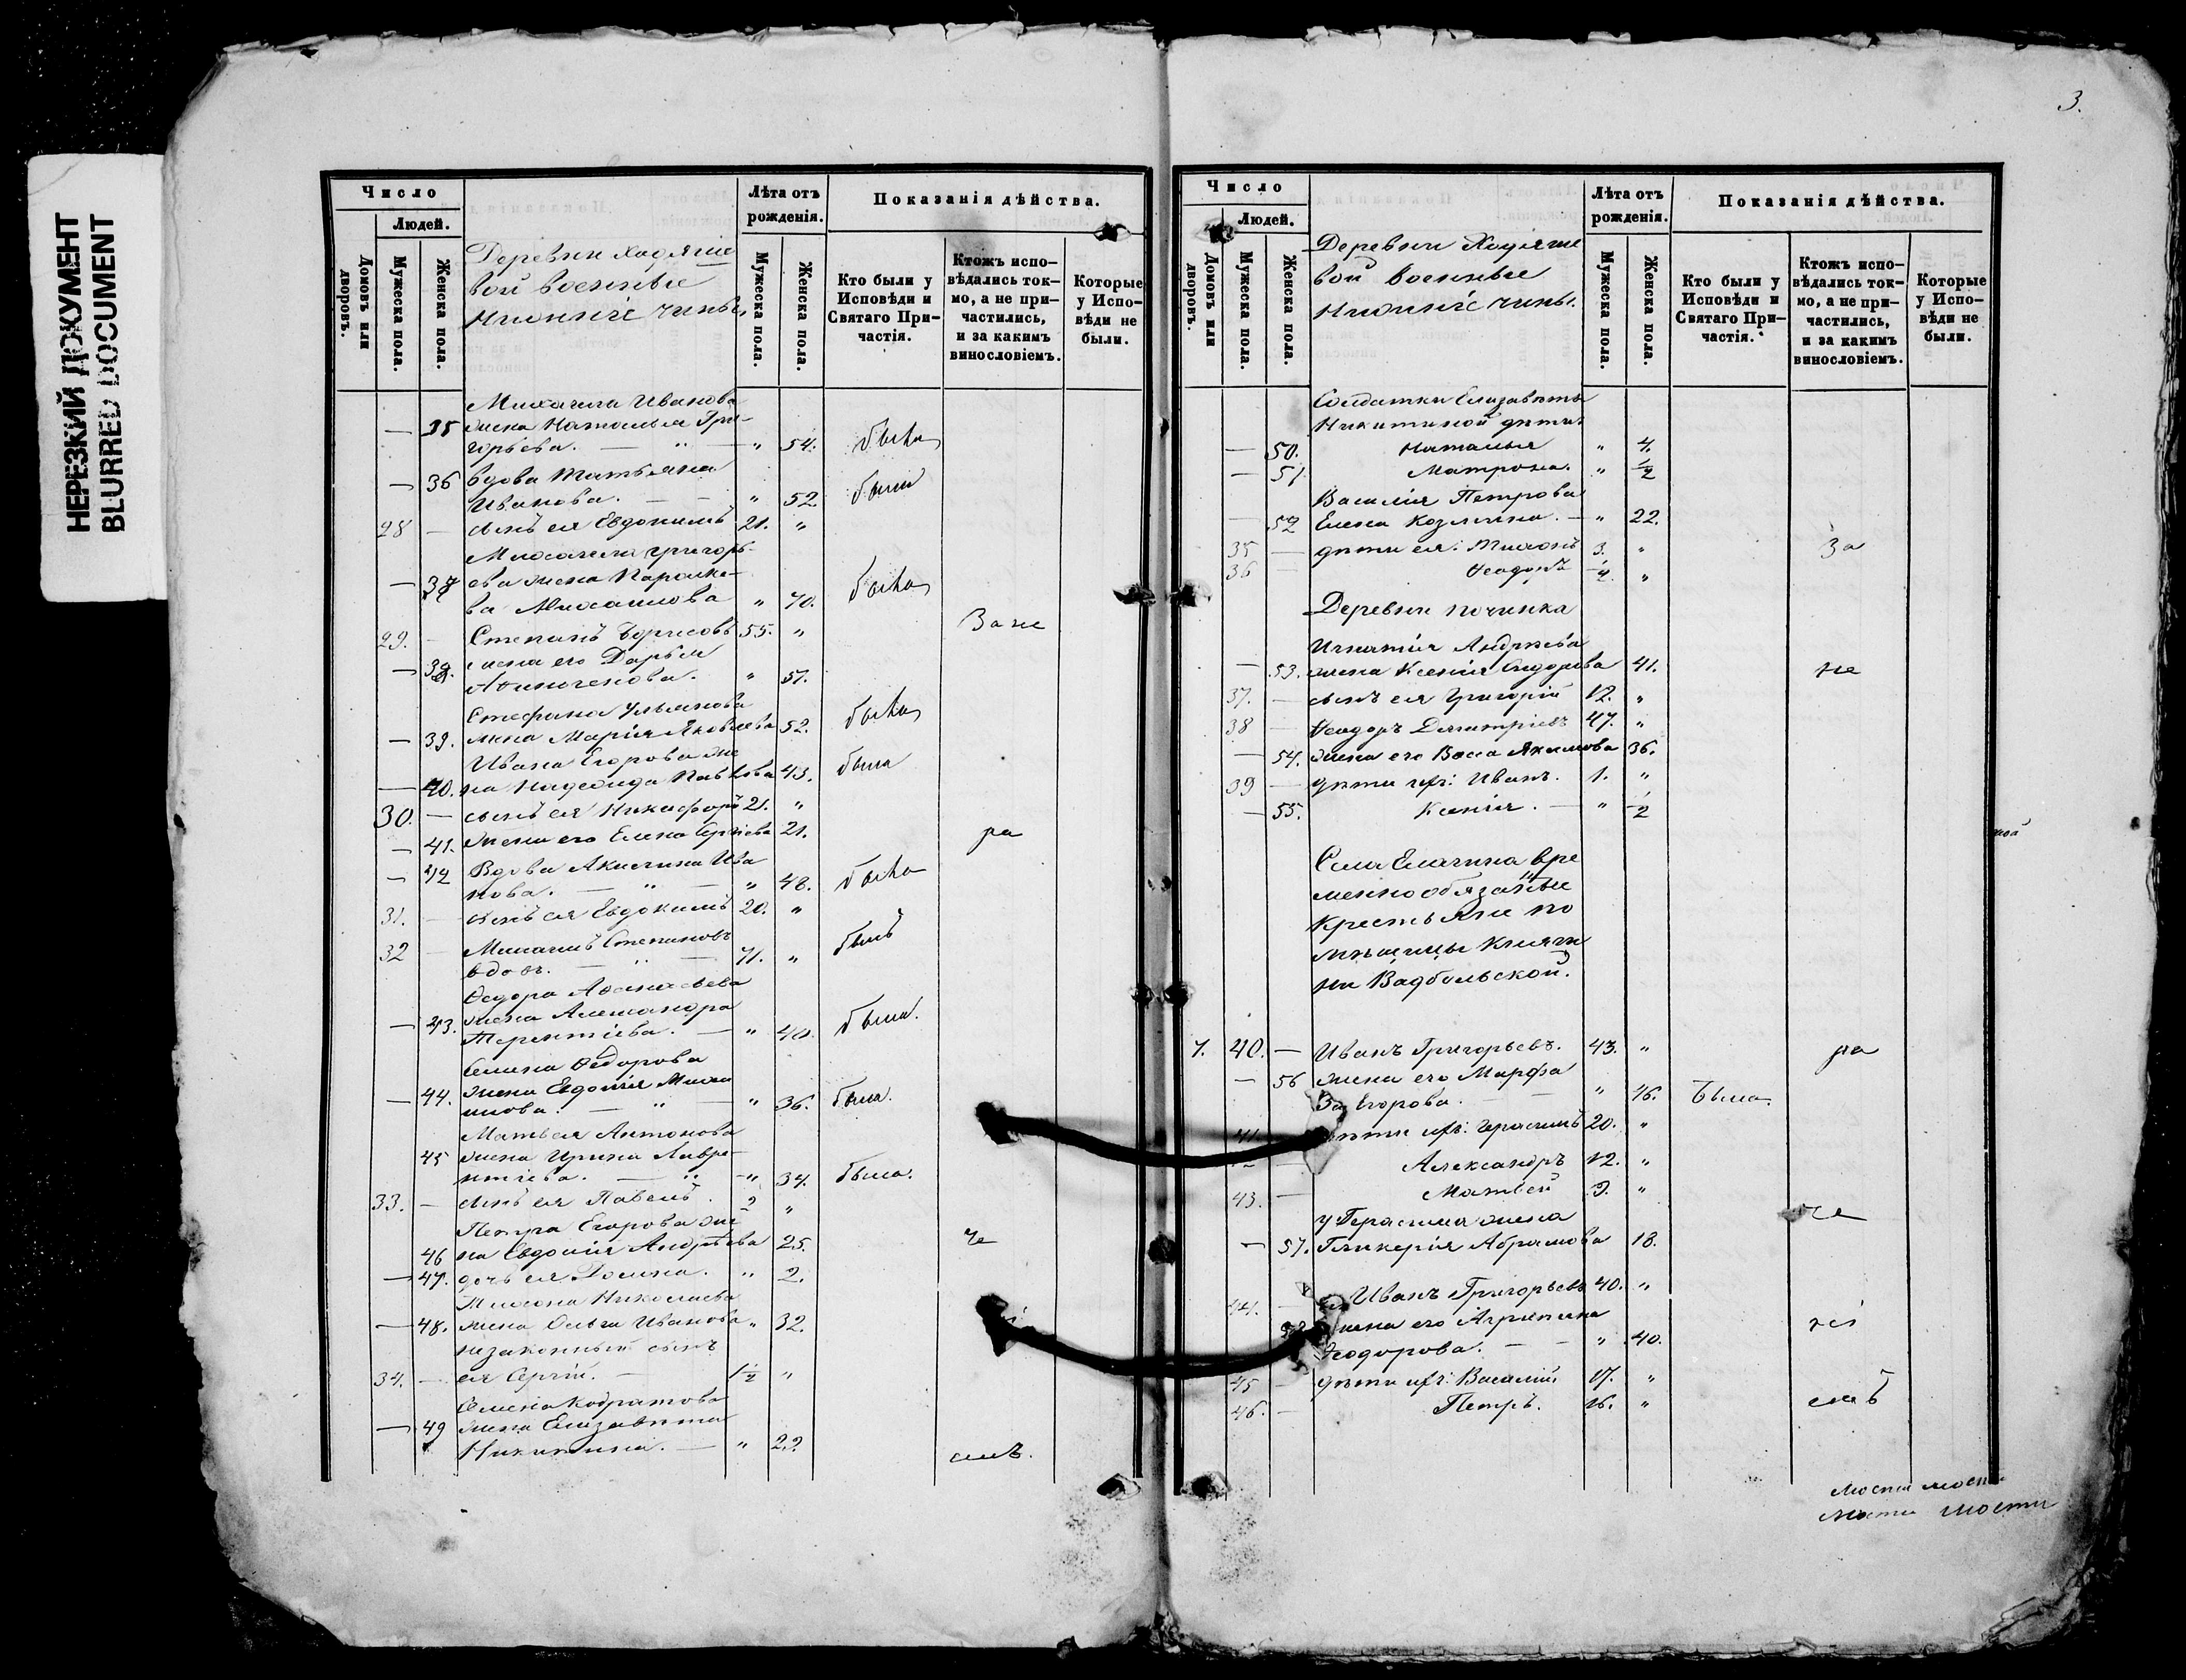 НЕРЕЗКИЙ ДОКУМЕНТ
BLURRED DOCUMENT
Число
Людей.
Домовъ или дворовъ.
Мужеска пола.
Женска пола.
Деревни Ходяше
вой военные
нижніе чины.
Лѣта отъ рожденія.
Мужеска пола.
Женска пола.
Показанія дѣйства.
Кто были у Исповѣди и Святаго Причастія.
Ктожъ исповѣдались токмо, а не причастились, и за какимъ винословіемъ.
Которые у Исповѣди не были.
Михаила Иванова
— 35 жена Наталья Гри-
горьева. — " — " 54. была
— 36 вдова Татьяна
Иванова. — — " 52 была
28 — сынъ ея Евдокимъ 21. "
Михаила Григорь-
— 37 ева жена Параске-
ва Михаилова " 70. была
29. — Степанъ Борисовъ 55. " За не
— 38. жена его Дарья
" 57.
Стефана Ульянова
— 39. жена Марія Яковлева 52. была
Ивана Егорова же
— 40. на Надежда Павлова 43. была
30. — сынъ ея Никифоръ 21. "
— 41. жена его Елена Сергіева 21. ра
— 42 Вдова Акилина Ива
нова. — " — " 48. была
31. — сынъ ея Евдокимъ 20. "
32 — Степановъ
вдовъ. — " — 71. " былъ
Ѳедора Аѳанасьева
— 43. жена Александра
Терентіева. — " 40. была.
Семена Ѳедорова
— 44. жена Евдокія Миха
илова. — " — " 36. была.
Матвея Антонова
45 жена Ирина Лавре-
нтіева. — " — " 34. была.
33. — сынъ ея Павелъ. 2 "
Петра Егорова же
46 на Евдокія Андрѣева 25. че
— 47. дочь ея " 2.
Николаева
— 48. жена Ольга Иванова " 32.
незаконный сынъ
34. — ея Сергій. — 1½ "
Семена Кодратова
— 49 жена Елизавета
Никитина. — " 22. емъ.
3.
Число
Людей.
Домовъ или дворовъ.
Мужеска пола.
Женска пола.
Деревни Ходяше
вой военные
нижніе чины.
Лѣта отъ рожденія.
Мужеска пола.
Женска пола.
Показанія дѣйства.
Кто были у Исповѣди и Святаго Причастія.
Ктожъ исповѣдались токмо, а не причастились, и за какимъ винословіемъ.
Которые у Исповѣди не были.
Солдатки Елизаветы
Никитиной дѣти:
— 50. Наталья " 4.
— 51 Матрона. " ½
Василія Петрова
— 52 Елена Козмина. — " 22.
35 — дѣти ея: Тихонъ 3. " За
36 — Ѳеодоръ "
Деревни Починка
Игнатія Андреева
— 53. жена Ксенія Сидорова 41. не
37. — сынъ ея Григорій 12. "
38 — Ѳеодоръ Димитріевъ 47. "
— 54. жена его Васса Якимова 36.
39 — дѣти ихъ: Иванъ. 1. "
— 55. Ксенія. — " ½
Села Елагина вре
менно обязанные
крестьяне по
мѣщицы Княги
ни Вадбольской.
7. 40. — Иванъ Григорьевъ. 43. " ра
— 56 жена его Марфа
Егорова. — — " 46. Была.
41. дѣти ихъ: Герасимъ 20. "
Александръ 12. "
43. — Матвей 9. "
у Герасима жена че
— 57. Гликерія Абрамова 18.
44. — Иванъ Григорьевъ 40. "
жена его Агрипина
Ѳеодорова. — — " 40. ніе
45 — дѣти ихъ: Василій 17. "
46. — Петръ. 16. " емъ
мости
мости